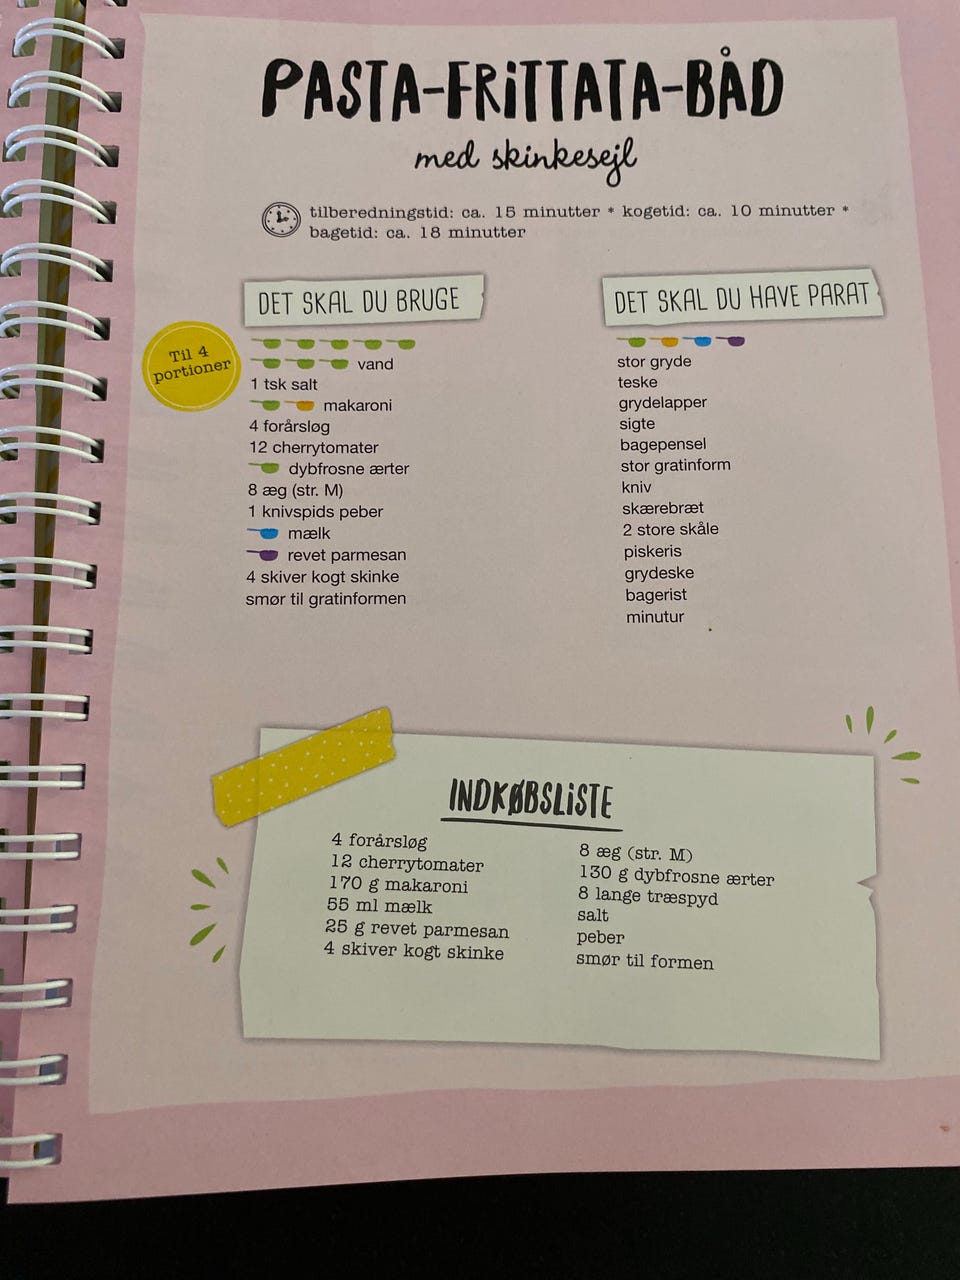 PASTA-FRITTATA-BÅD
med skinkesejl
tilberedningstid: ca. 15 minutter * kogetid: ca. 10 minutter *
bagetid: ca. 18 minutter
DET SKAL DU BRUGE
Til 4
portioner
vand
1 tsk salt
makaroni
4 forårsløg
12 cherrytomater
dybfrosne ærter
8 æg (str. M)
1 knivspids peber
mælk
revet parmesan
4 skiver kogt skinke
smør til gratinformen
DET SKAL DU HAVE PARAT
stor gryde
teske
grydelapper
sigte
bagepensel
stor gratinform
kniv
skærebræt
2 store skåle
piskeris
grydeske
bagerist
minutur
INDKØBSLISTE
4 forårsløg
12 cherrytomater
170 g makaroni
55 ml mælk
25 g revet parmesan
4 skiver kogt skinke
8 æg (str. M)
130 g dybfrosne ærter
8 lange træspyd
salt
peber
smør til formen